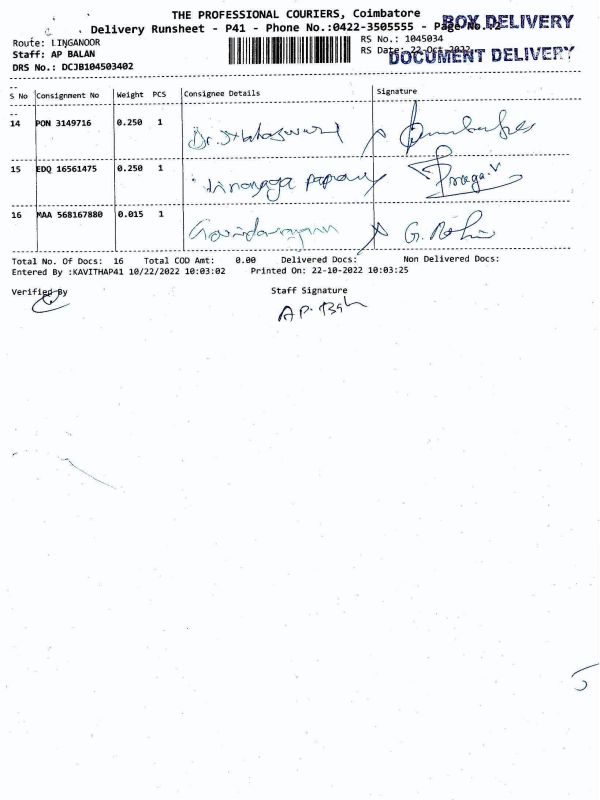 THE PROFESSIONAL COURIERS, Coimbatore
Delivery Runsheet - P41 - Phone No.:0422-3505555 - Page No.
BOX DELIVERY
Route: LINGANOOR
RS No.: 1045034
Staff: AP BALAN
RS Date: 22-Oct-2022
DOCUMENT DELIVERY
DRS No.: DCJB104503402
S No Consignment No Weight PCS Consignee Details Signature
14 PON 3149716 0.250 1 Dr.
15 EDQ 16561475 0.250 1
16 MAA 568167880 0.015 1
Total No. Of Docs: 16 Total COD Amt: 0.00 Delivered Docs: Non Delivered Docs:
Entered By :KAVITHAP41 10/22/2022 10:03:02 Printed On: 22-10-2022 10:03:25
Verified By Staff Signature